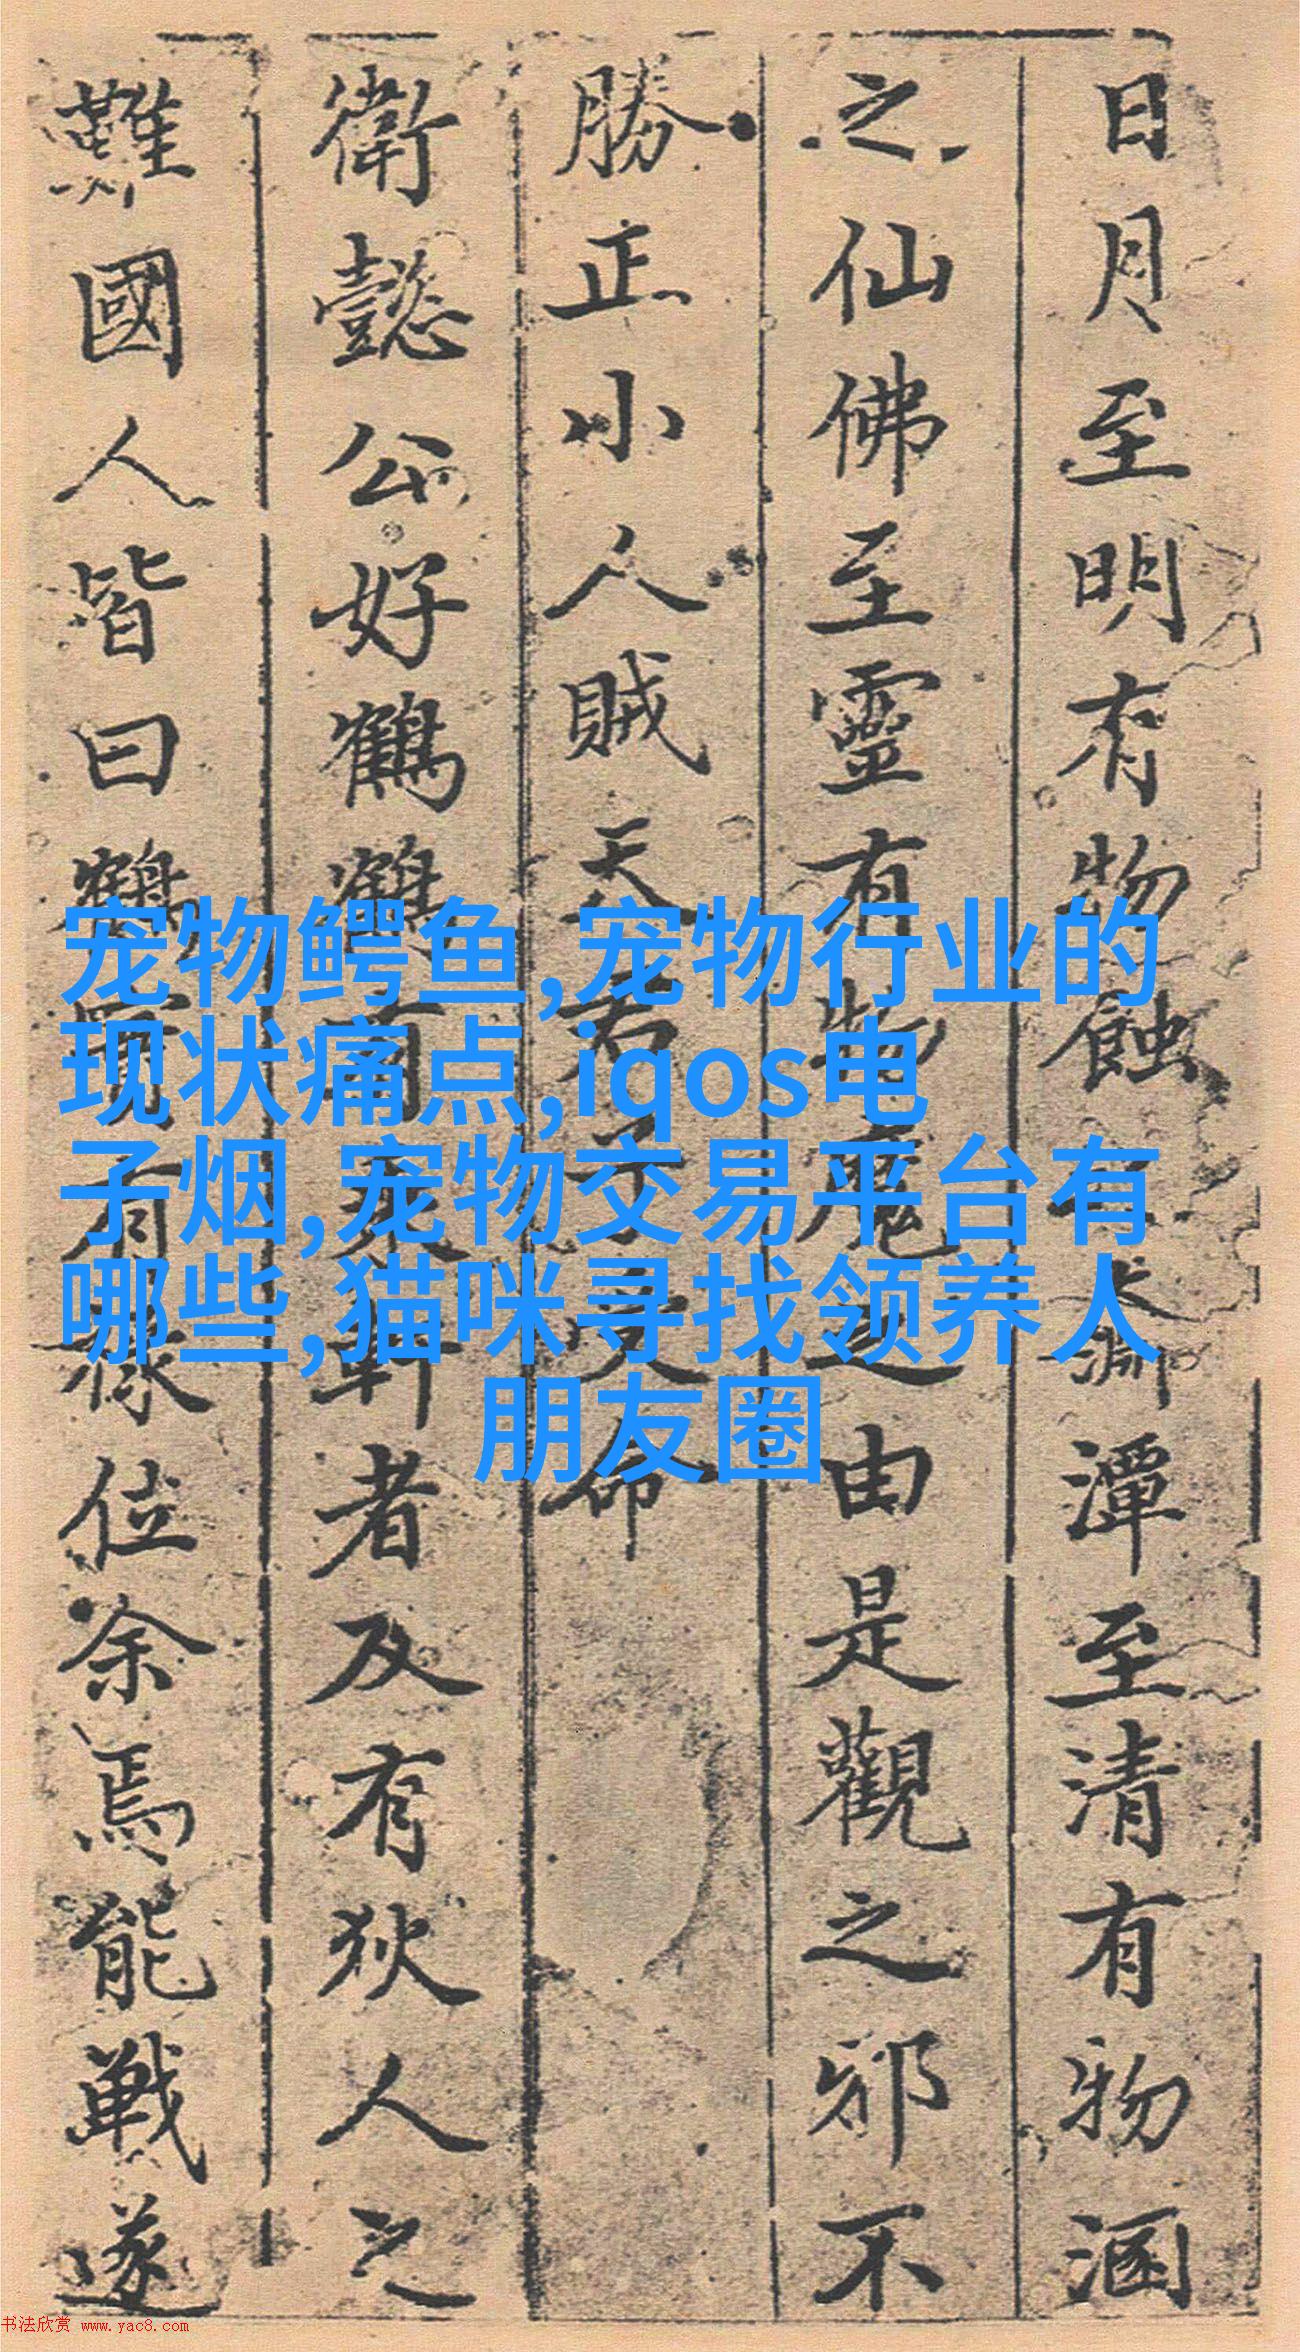 日月至明有物蝕之太淵潭至清有物涵
之仙佛至靈有物魔之由是觀之邪不
勝正小人賊天君子受命
衛懿公好鶴鶴有乘軒者及有狄人之
難國人皆曰鶴實有祿位余焉能戰遂
宠物鳄鱼,宠物行业的
现状痛点,iqos电
子烟,宠物交易平台有
哪些,猫咪寻找领养人
朋友圈
书法欣赏 www.yac8.com